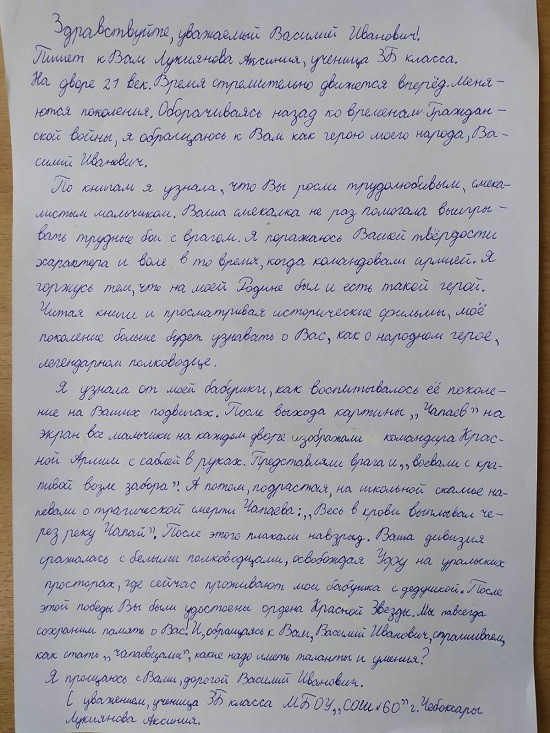 Здравствуйте, уважаемый Василий Иванович!
Пишет к Вам Лукиянова Аксиния, ученица 3Б класса.
На дворе 21 век. Время стремительно движется вперёд. Меня-
ются поколения. Оборачиваясь назад ко временам Граждан-
ской войны, я обращаюсь к Вам как герою моего народа, Ва-
силий Иванович.
По книгам я узнала, что Вы росли трудолюбивым, смека-
листым мальчиком. Ваша смекалка не раз помогала выигры-
вать трудные бои с врагом. Я поражаюсь Вашей твёрдости
характера и воле в то время, когда командовали армией. Я
горжусь тем, что на моей Родине был и есть такой герой.
Читая книги и просматривая исторические фильмы, моё
поколение больше будет узнавать о Вас, как о народном герое,
легендарном полководце.
Я узнала от моей бабушки, как воспитывалось её поколе-
ние на Ваших подвигах. После выхода картины „Чапаев" на
экран все мальчики на каждом дворе изображали командира Крас-
ной Армии с саблей в руках. Представляли врага и „воевали с кра-
пивой возле забора". А потом, подрастая, на школьной скамье на-
певали о трагической смерти Чапаева: „Весь в крови выплывал че-
рез реку Чапай". После этого плакали навзрыд. Ваша дивизия
сражалась с белыми полководцами, освобождая Уфу на уральских
просторах, где сейчас проживают мои бабушка с дедушкой. После
этой победы Вы были удостоены ордена Красной Звезды. Мы навсегда
сохраним память о Вас. И, обращаясь к Вам, Василий Иванович, спрашиваем,
как стать „чапаевцами", какие надо иметь таланты и умения?
Я прощаюсь с Вами, дорогой Василий Иванович.
С уважением, ученица 3Б класса МБОУ „СОШ №60" г. Чебоксары
Лукиянова Аксиния.